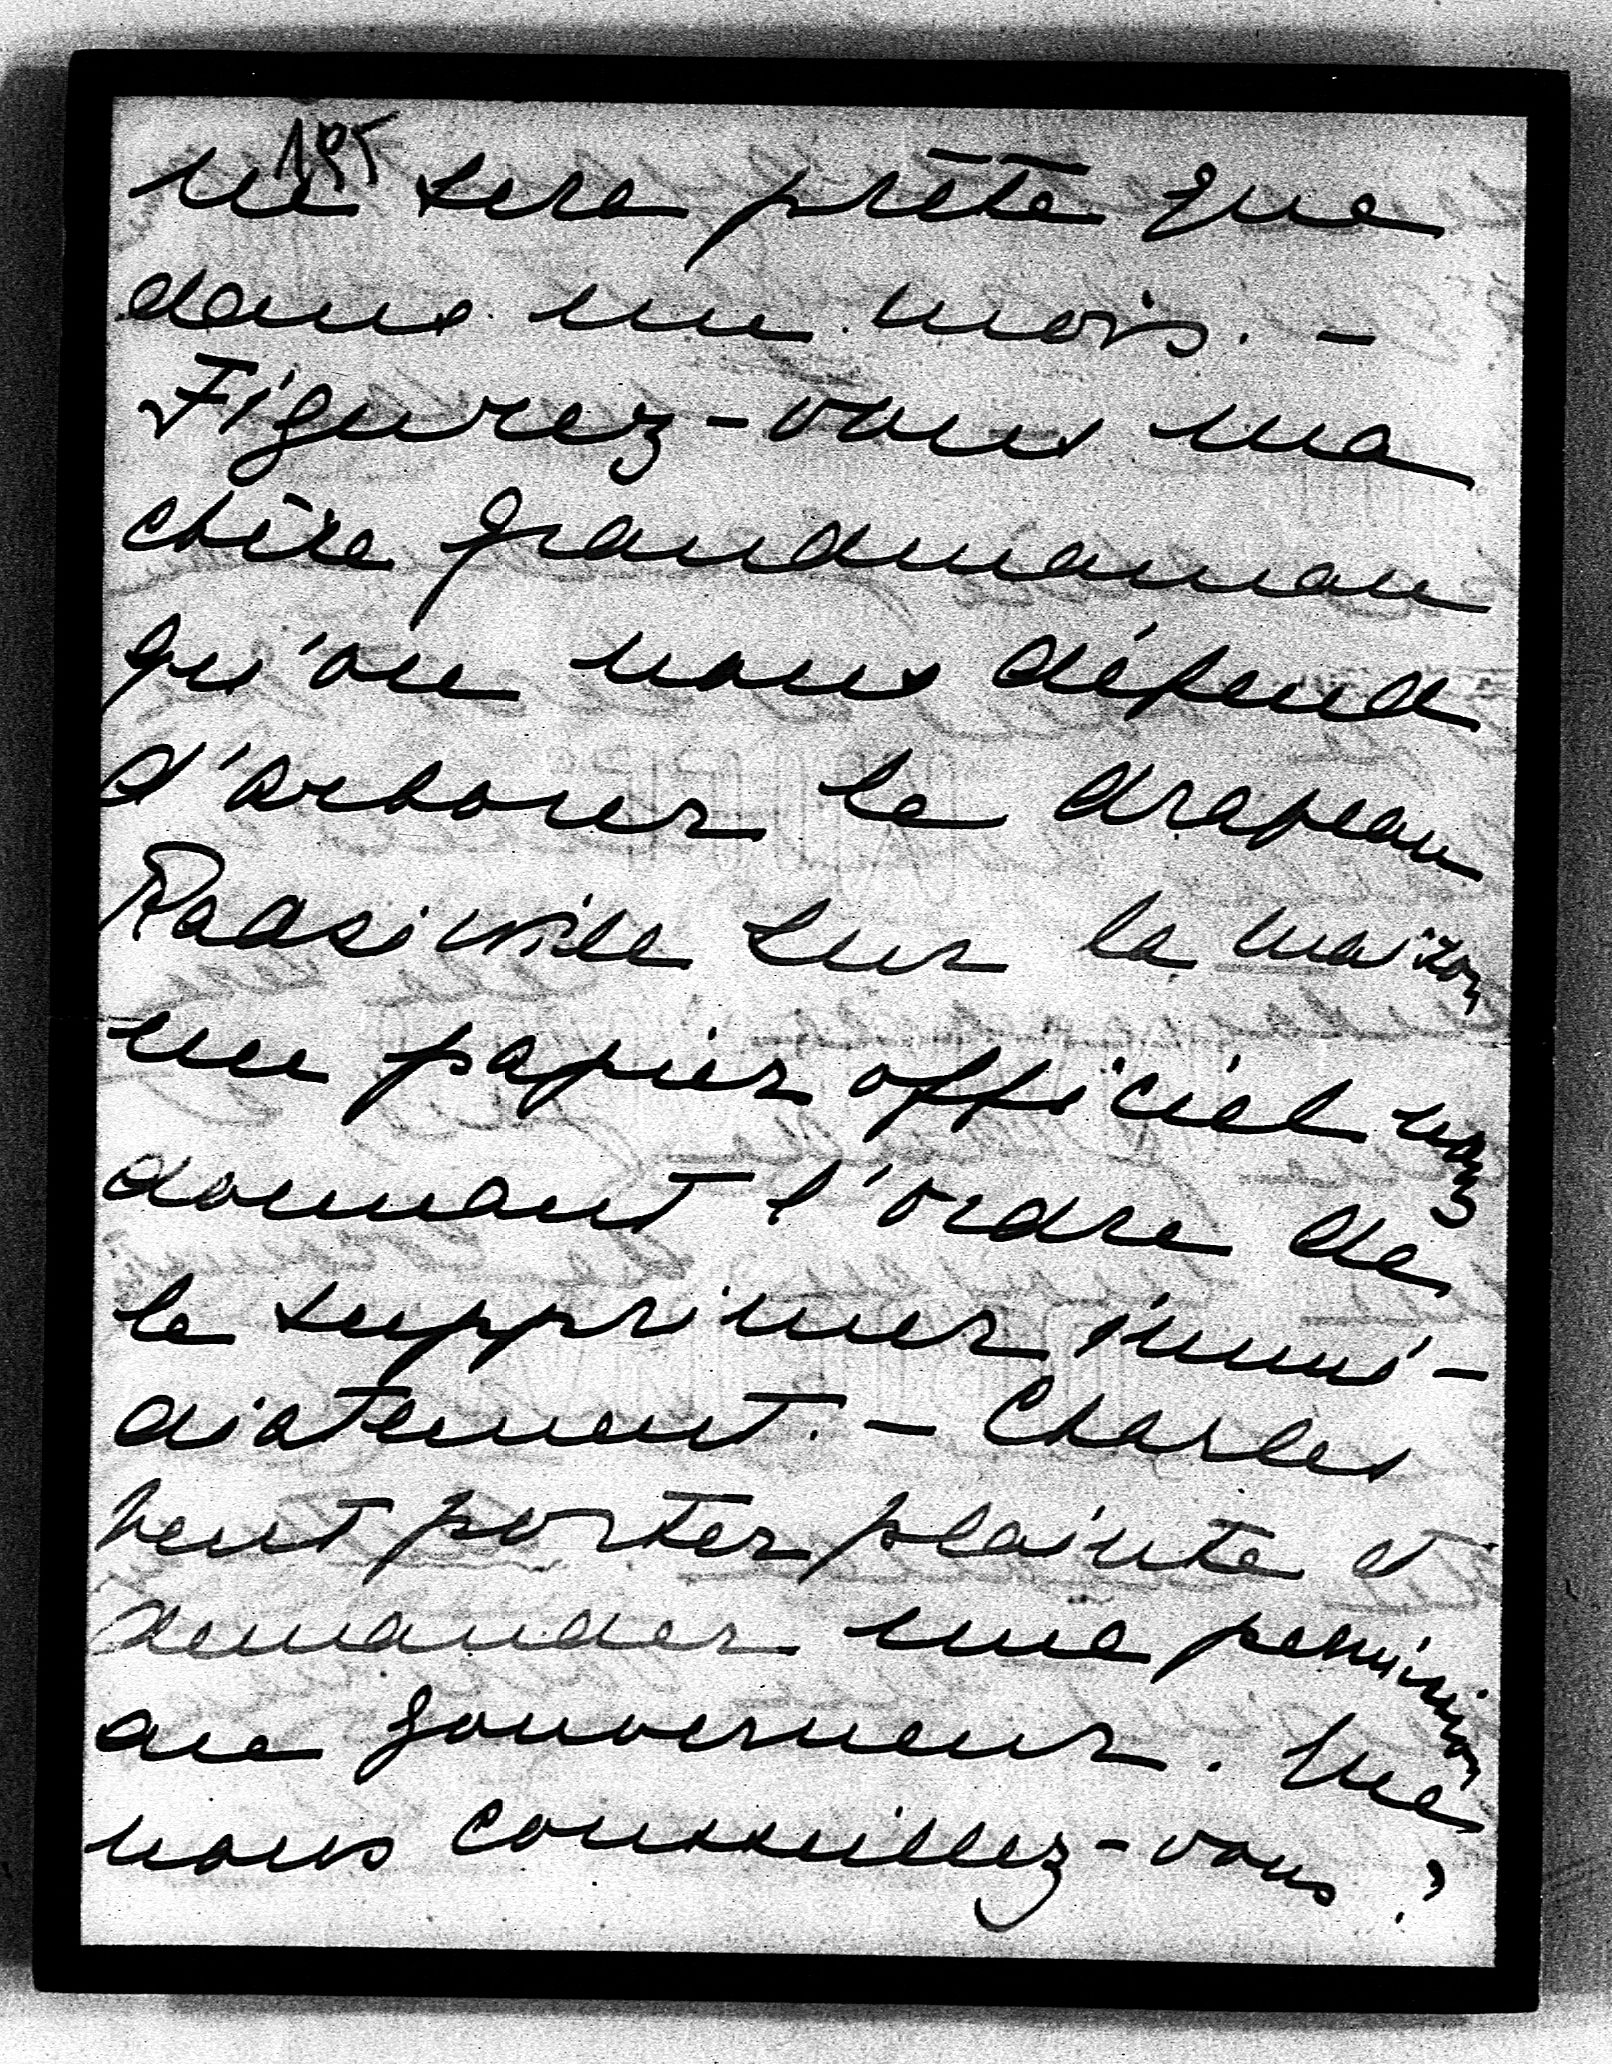 195
ne sera prête que
dans un mois. -
Figurez-vous ma
chère grandmaman
qu'on nous défend
d'arborer le drapeau
Radziwill sur la maison
un papier officiel nous
donnant l'ordre de
le supprimer immé-
diatement. - Charles
veut porter plainte et
demander une permission
au gouverneur. Que
nous conseillez-vous?